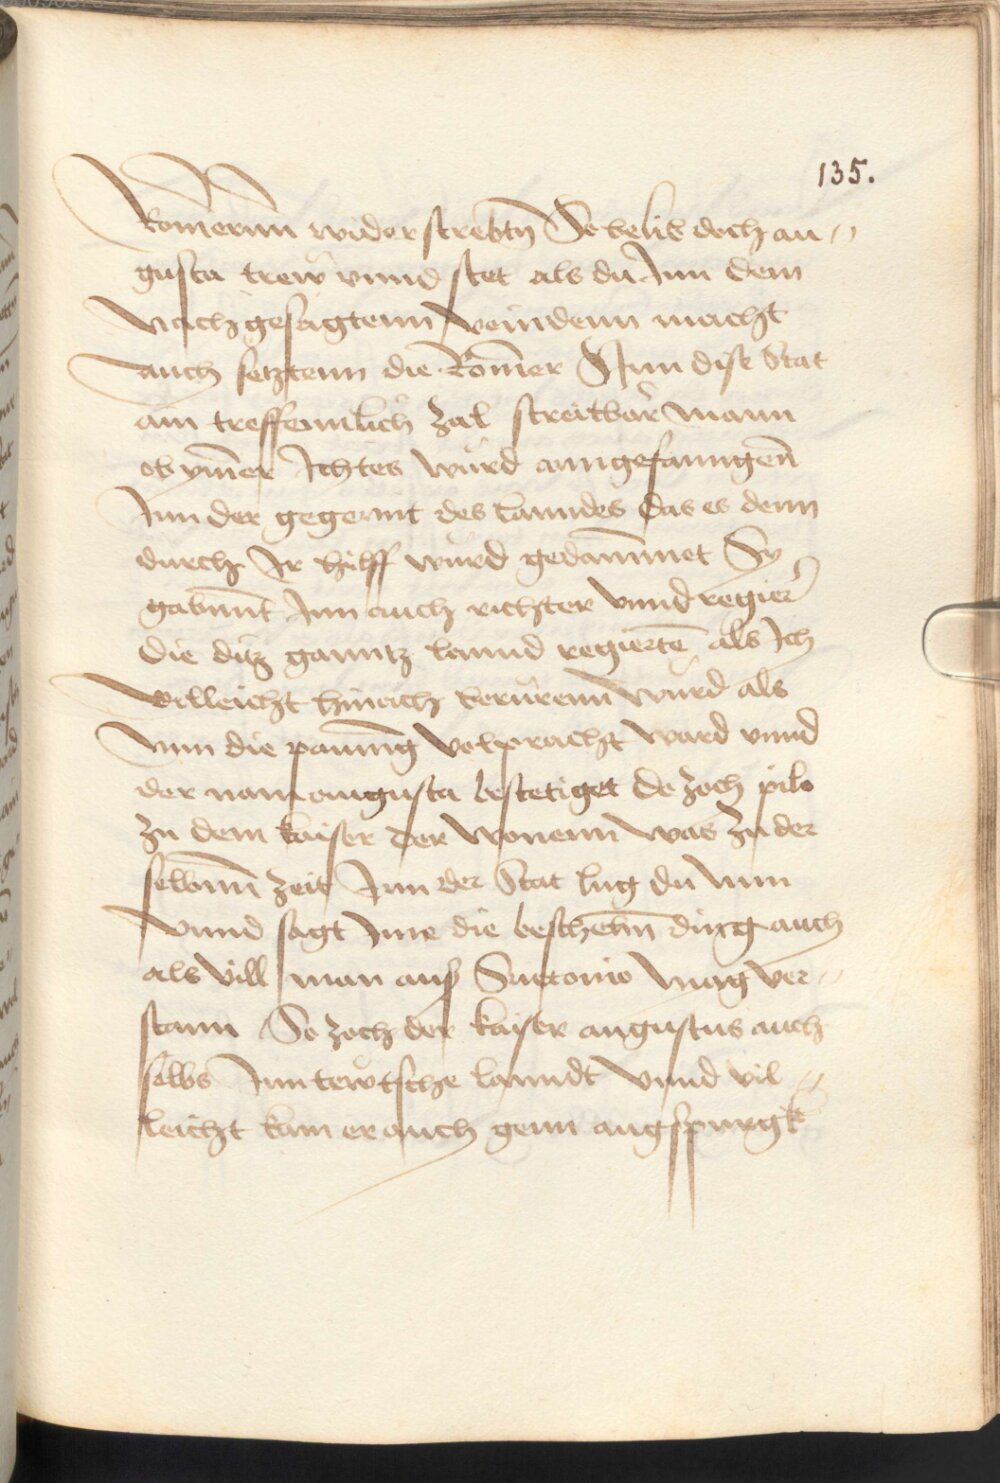 135.
Romernn widerstrebtn̄ So belib doch au=
gusta trew vnnd stet als du Inn dem
nachgesagtenn veindenn macht
auch setztenn die Römer Inn dise Stat
ain treffennlich zal streitbar mann
ob ym̄er Ichtes wurd anngefanngen̄
Inn der gegennt des lanndes das es denn
durch Ir hilff wurd gedammet Sy
gabnnt Inn auch richter vnnd regier̄
die ditz ganntz lannd regiertē als Ich
villeicht hinach berurenn wurd als
nun die pauung volpracht ward vnnd
der nam augusta bestetiget do zoch pilo
zu dem kaiser der wonenn was zu der
selbnn̄ zeit Inn der Stat lugdunn
vnnd sagt Ime die beschehn̄ ding auch
als vill man auß Suetonio mag ver=
stann So zoch der kaiser augustus auch
selbs Inn tewtsche lanndt vnnd vil=
leicht kam er auch genn augspurgk